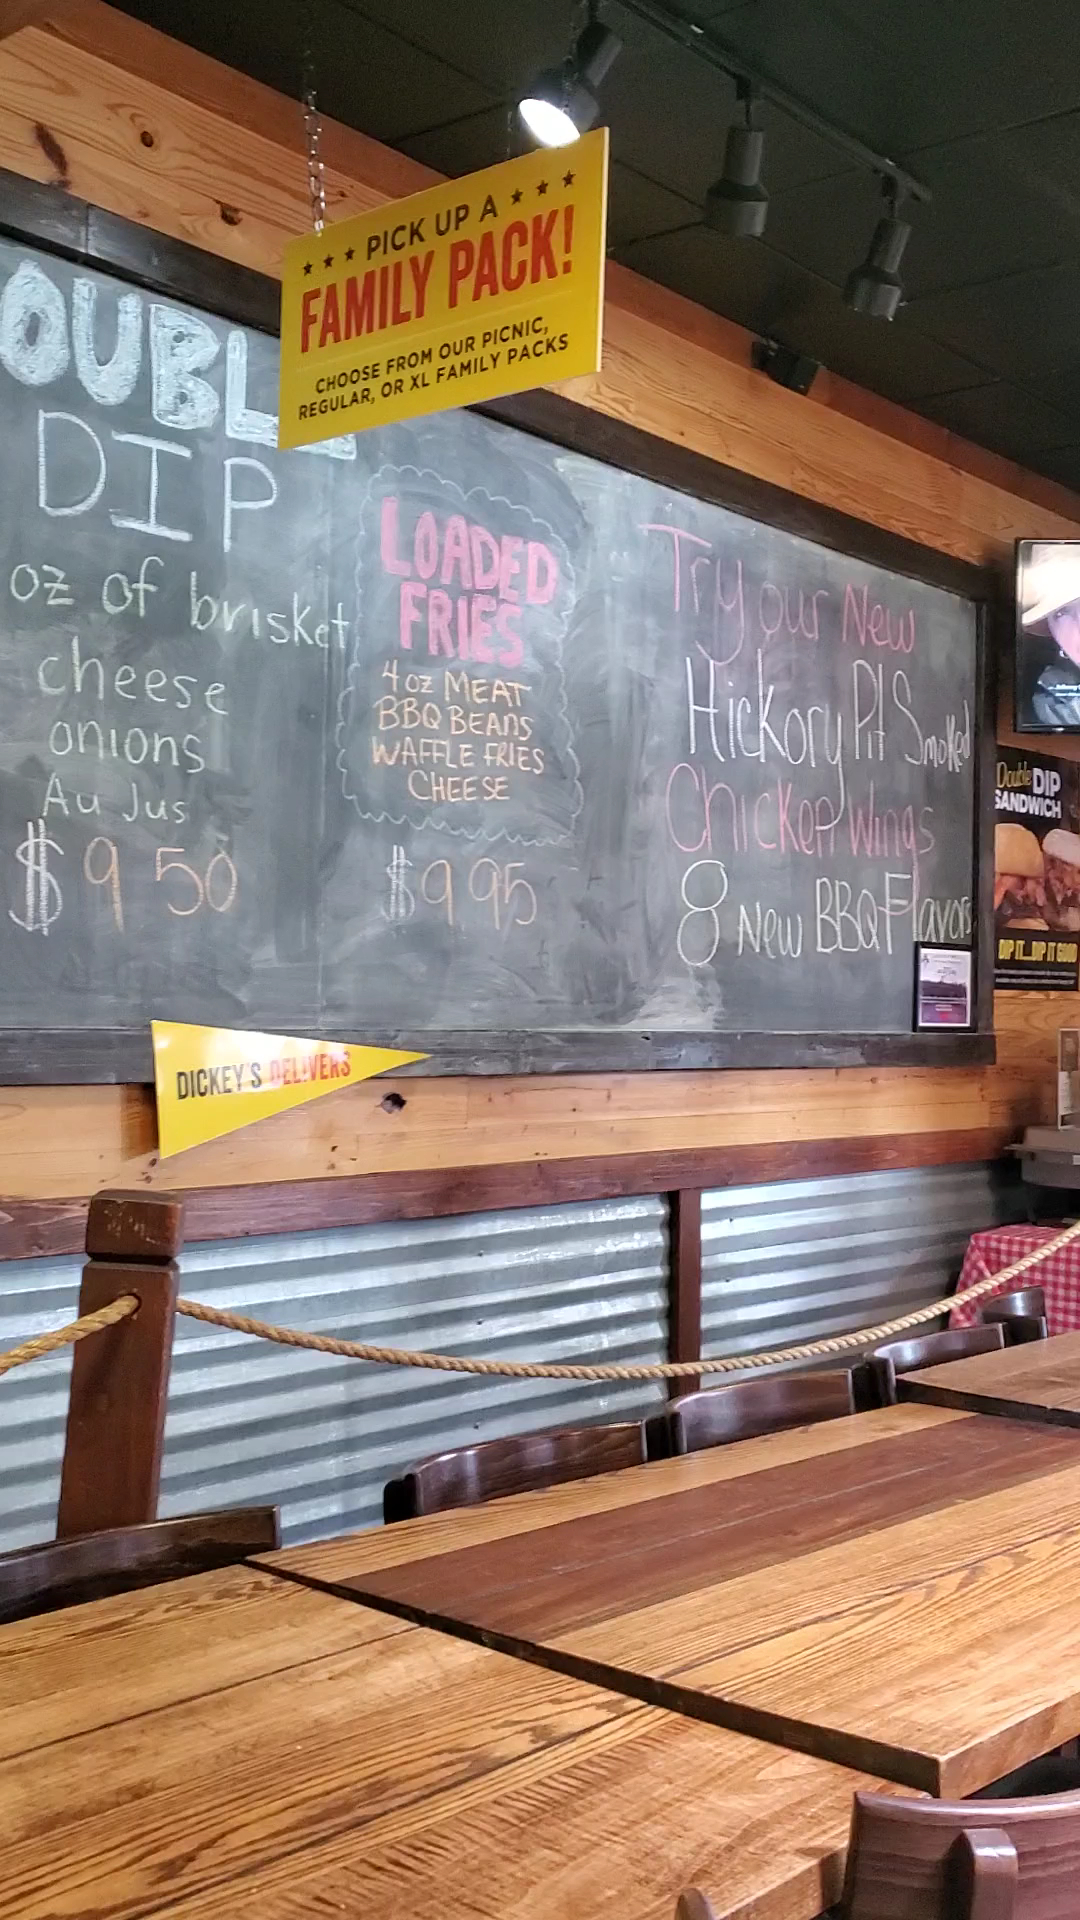 ★ ★ ★ PICK UP A ★ ★ ★
FAMILY PACK!
CHOOSE FROM OUR PICNIC,
REGULAR, OR XL FAMILY PACKS
OUBL
DIP
oz of brisket
cheese
onions
Au Jus
$9 50
LOADED
FRIES
4 oz MEAT
BBQ BEANS
WAFFLE FRIES
CHEESE
$9 95
Try our New
Hickory Pit Smoked
Chicken Wings
8 New BBQ Flavors
Double DIP
SANDWICH
DIP IT...DIP IT GOOD
DICKEY'S DELIVERS